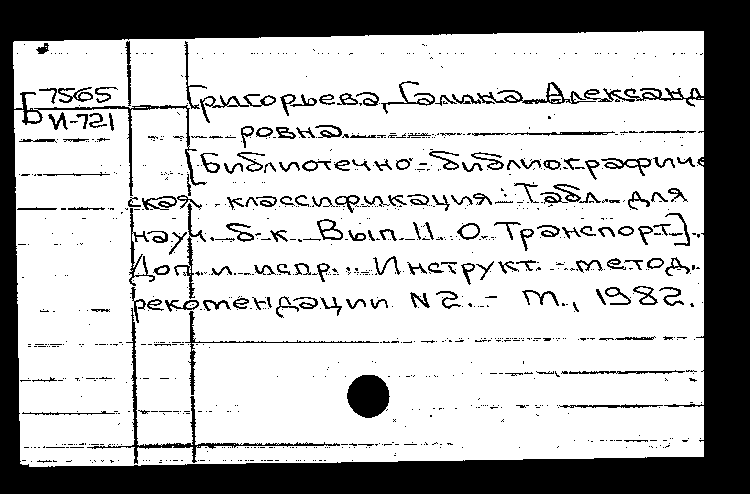 Б 7565
И-721
Григорьева, Галина Александ
ровна.
[Библиотечно-библиографиче
ская классификация: Табл. для
науч. б-к. Вып. II. О. Транспорт].
Доп. и испр.: Инструкт.-метод.
рекомендации N2. - М., 1982.